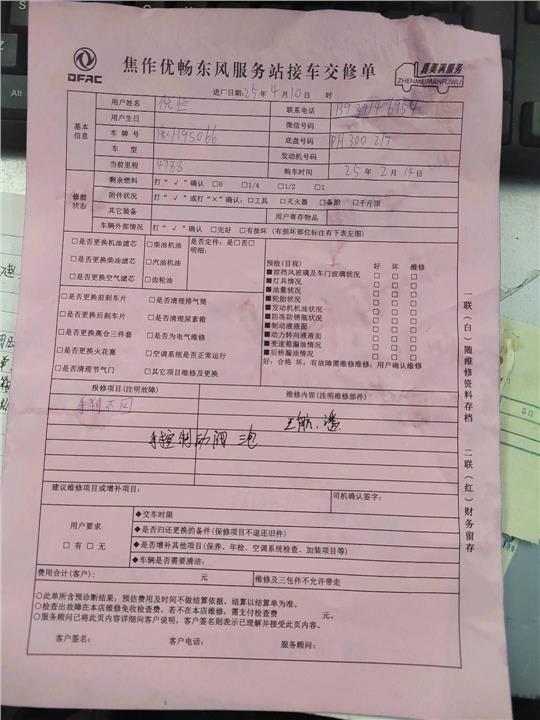 DFAC
焦作优畅东风服务站接车交修单
真美满服务
ZHENMEIMANFUWU
进厂日期: 25 年 4 月 10 日 时
基本信息
用户姓名
联系电话
用户生日
微信号码
车牌号
底盘号码 PH300217
车型
发动机号码
当前里程
购车时间 25 年 2 月 14 日
修前状态
剩余燃料 打“√”确认 □0 □1/4 □1/2 □1
附件状况 打“√”或打“×”确认: □工具 □灭火器 □备胎 □千斤顶
其它装备 用户寄存物品
车辆外部情况 打“√”确认 □完好 □有损坏 (有损坏部位标注有下表左图)
□是否更换机油滤芯 □柴油机油 是否定件: 是□否□
明细:
□是否更换柴油滤芯 □汽油机油
□是否更换空气滤芯 □齿轮油
□是否更换前刹车片 □是否清理排气筒
□是否更换后刹车片 □是否清理尿素箱
□是否更换离合三件套 □是否为电气维修
□是否更换火花塞 □空调系统是否正常运行
□是否清理节气门 □其它项目维修及更换
预检(目视) 好 坏 维修
■前挡风玻璃及车门玻璃状况 □ □ □
■灯具情况 □ □ □
■油量状况 □ □ □
■轮胎状况 □ □ □
■发动机机油状况 □ □ □
■防冻防锈瓶状况 □ □ □
■制动液液面 □ □ □
■动力转向液液面 □ □ □
■变速箱漏油情况 □ □ □
■后桥漏油情况 □ □ □
好: 合格 坏: 有故障需维修维用: 用户确认维修
报修项目(注明故障) 维修内容(注明维修部件)
手刹不回
手控制动阀 三包
建议维修项目或增补项目:
司机确认签字:
用户要求
□有 □无
◆交车时限
◆是否归还更换的备件(保修项目不退还旧件)
◆是否增补其他项目(保养、年检、空调系统检查、加装项目等)
◆车辆是否需要清洁:
费用合计(客户): 元 维修及三包件不允许带走
○此单所含预诊断结果，预估费用及时间不做结算依据，结算以结算单为准。
○检查出故障在本店维修免收检查费，若不在本店维修，需支付检查费 元。
○服务顾问已将此页内容详细向客户说明，客户签名则表示已理解并接受此页内容。
客户签名: 客户电话: 服务顾问:
一联(白)随维修资料存档
二联(红)财务留存